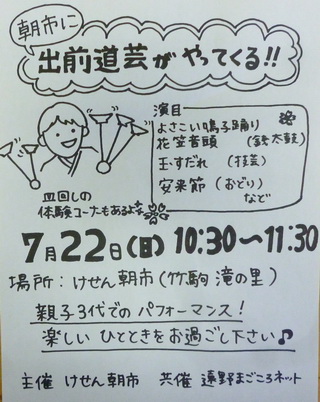 朝市に
出前道芸がやってくる!!
演目
よさこい鳴子踊り
花笠音頭 (銭太鼓)
玉すだれ (技芸)
安来節 (おどり)
など
皿回しの
体験コーナもあるよ
7月22日(日) 10:30〜11:30
場所:けせん朝市(竹駒 滝の里)
親子3代でのパフォーマンス!
楽しいひとときをお過ごし下さい♪
主催 けせん朝市 共催 遠野まごころネット